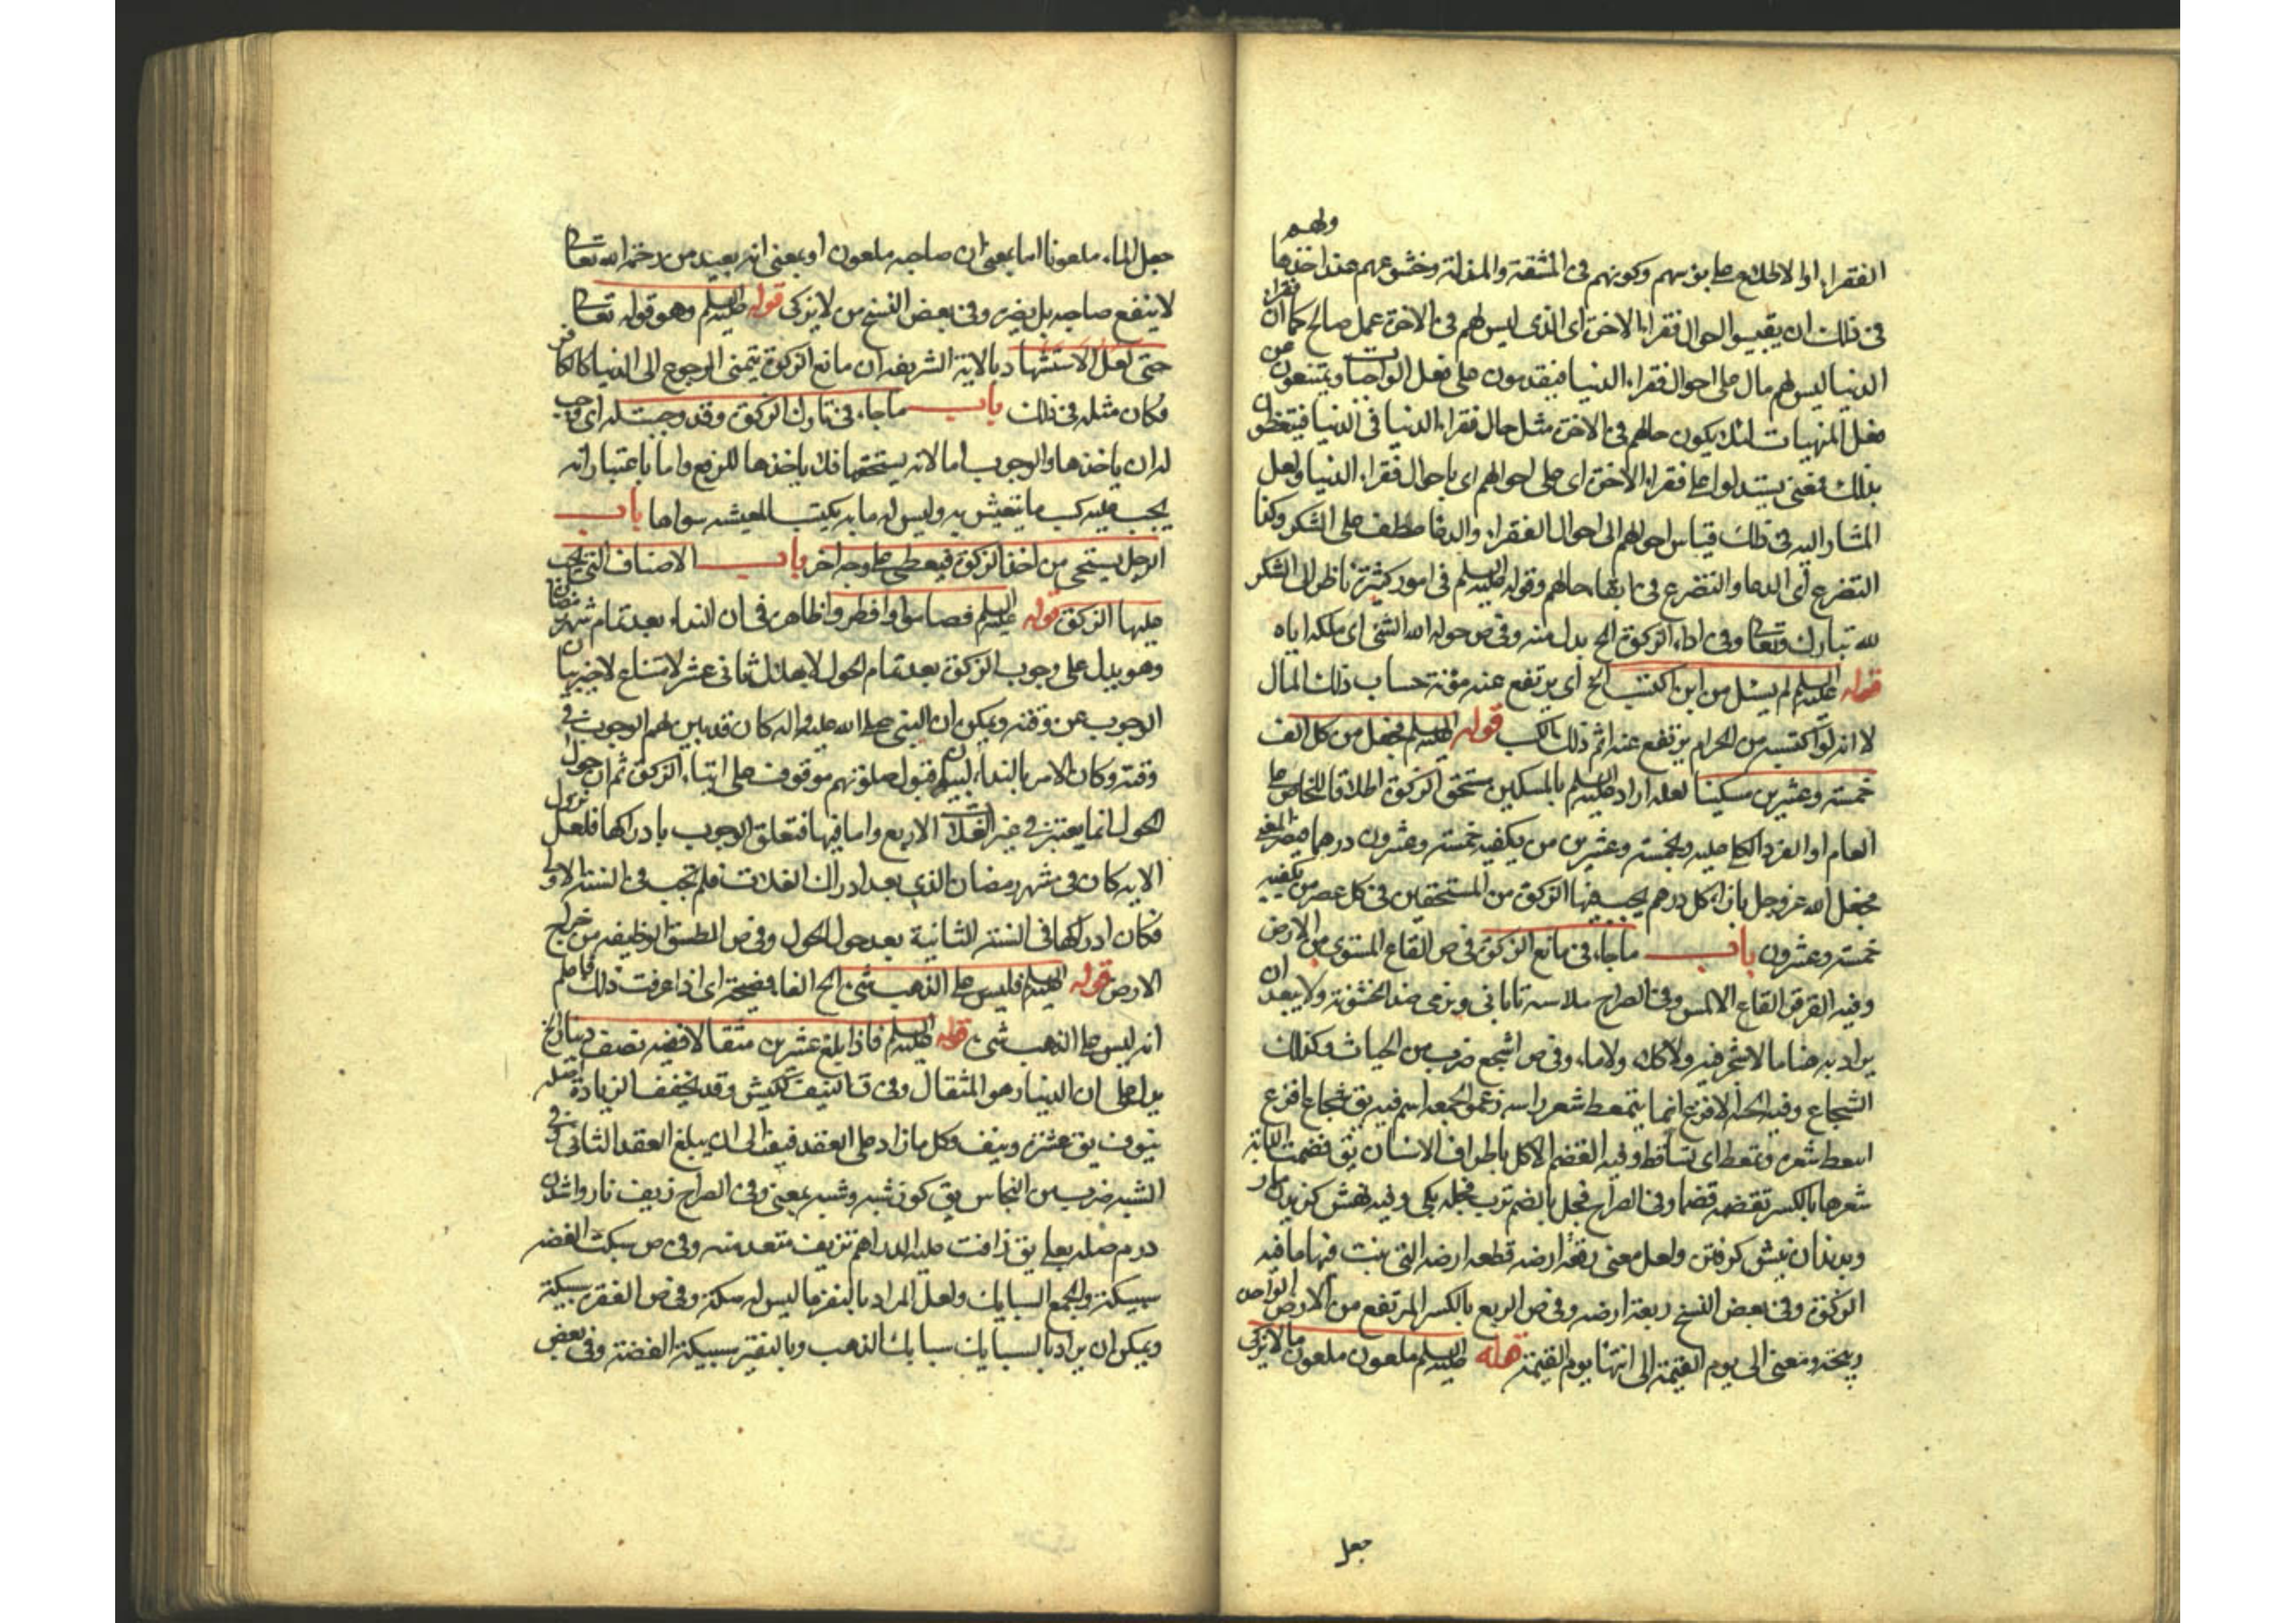 ولهم
الفقراء او الاطلاع على بؤسهم وكونهم فى المشقة والمذلة وخشوعهم عند اخذها
فى ذلك ان يقيسوا احوال فقراء الاخرة اى الذى ليس لهم فى الاخرة عمل صالح كما ان فقراء
الدنيا ليس لهم مال على احوال فقراء الدنيا فيقدمون على فعل الواجبات ويمتنعون من
فعل المنهيات لئلا يكون حالهم فى الاخرة مثل حال فقراء الدنيا فى الدنيا فيتعظون
بذلك فمعنى يستدلوا على فقراء الاخرة اى على احوالهم اى باحوال فقراء الدنيا ولعل
المشار اليه فى ذلك قياس احوالهم الى احوال الفقراء والدعا عطف على الشكر وكذا
التضرع اى الدعا والتضرع فى بقاء حالهم وقوله عليه السلم فى امور كثيرة ناظر الى الشكر
لله تبارك وتعالى وفى اداء الزكوة الخ بدل منه وفى ص خوله الله الشئ اى ملكه اياه
قوله عليه السلم لم يسئل من اين اكتسب الخ اى يرتفع عنه مؤنة حساب ذلك المال
لا انه لو اكتسبه من الحرام يرتفع عنه اثم ذلك الكسب قوله عليه السلم فجعل من كل الف
خمسة وعشرين مسكينا لعله اراد عليه السلم بالمسكين مستحق الزكوة اطلاقا للخاص على
العام او الفرد الكامل عليه وبخمسة وعشرين من يكفيه خمسة وعشرون درهما
فجعل الله عز وجل بازاء كل درهم يجب فيها الزكوة من المستحقين فى كل عصر من يكفيه
خمسة وعشرون باب ما جاء فى مانع الزكوة فى ص القاع المستوى من الارض
وفيه القرقر القاع الاملس وفى الصراح ملاسة تابانى ونرمى ضد الخشونة ولا يبعد ان
يراد به هنا ما لا شجر فيه ولا كلاء ولا ماء وفى ص اشجع ضرب من الحيات وكذلك
الشجاع وفيه الحية الاقرع انما يتمعط شعر راسه زعموا لجمعه السم فيه يق شجاع اقرع
امعط شعره وتمعط اى تساقط وفيه القضم الاكل باطراف الاسنان يق قضمت الدابة
شعيرها بالكسر تقضمه قضما وفى الصراح فجل بالضم ترب فجلة يكى وفيه نهش كزيدن مار
وبدندان نيش كرفتن ولعل معنى ريعة ارضه قطعة ارضه التى ينبت فيها ما فيه
الزكوة وفى بعض النسخ ربعة ارضه وفى ص الريع بالكسر المرتفع من الارض الواحدة
ريعة ومعنى الى يوم القيمة الى انتهاء يوم القيمة قوله عليه السلم ملعون ملعون مال لا يزكى
جعل
جعل المال ملعونا اما بمعنى ان صاحبه ملعون او بمعنى انه بعيد من رحمة الله تعالى
لا ينفع صاحبه بل يضره وفى بعض النسخ من لا يزكى قوله عليه السلم وهو قوله تعالى
حتى لعل الاستشهاد بالاية الشريفة ان مانع الزكوة يتمنى الرجوع الى الدنيا كالكافر
فكان مثله فى ذلك باب ما جاء فى تارك الزكوة وقد وجبت له اى وجب
له ان ياخذها والوجوب اما لانه يستحقها فلا ياخذها للترفع واما باعتبار انه
يجب عليه كسب ما يتعيش به وليس له ما به يكتسب المعيشة سواها باب
الرجل يستحيى من اخذ الزكوة فيعطى على وجه اخر باب الاصناف التى يجب
عليها الزكوة قوله عليه السلم فصاموا وافطروا ظاهر فى ان النداء بعد تمام شهر رمضان
وهو يدل على وجوب الزكوة بعد تمام الحول لا بهلال ثانى عشر لامتناع تاخير بيان
الوجوب عن وقته ويمكن ان النبى صلى الله عليه واله كان قد بين لهم الوجوب فى
وقته وكان الامر بالنداء ليبين قبول صلوتهم موقوف على ايتاء الزكوة ثم ان حول
الحول انما يعتبر فى غير الغلات الاربع واما فيها فتعلق الوجوب بادراكها فلعل نزول
الاية كان فى شهر رمضان الذى بعد ادراك الغلات فلم تجب فى السنة الاولى
فكان ادراكها فى السنة الثانية بعد حول الحول وفى ص الطسق الوظيفة من خراج
الارض قوله عليه السلم فليس على الذهب شئ الخ الفاء فصيحة اى اذا عرفت ذلك فاعلم
انه ليس على الذهب شئ قوله عليه السلم فاذا بلغ عشرين مثقالا ففيه نصف دينار الخ
يدل على ان الدينار هو المثقال وفى ق النيف ككيس وقد يخفف الزيادة اصله
نيوف يق عشرة ونيف وكل ما زاد على العقد فنيف الى ان يبلغ العقد الثانى وفى
الشبه ضرب من النحاس يق كوز شبه وشبه بمعنى وفى الصراح زيف نا روا شدن
درم صلة بعلى يق زافت عليه الدراهم تزييف متعد منه وفى ص سبكت الفضة
سبيكة والجمع السبايك ولعل المراد بالنقر ما ليس له سكة وفى ص النقرة سبيكة
ويمكن ان يراد بالسبايك سبايك الذهب وبالنقر سبيكة الفضة وفى بعض